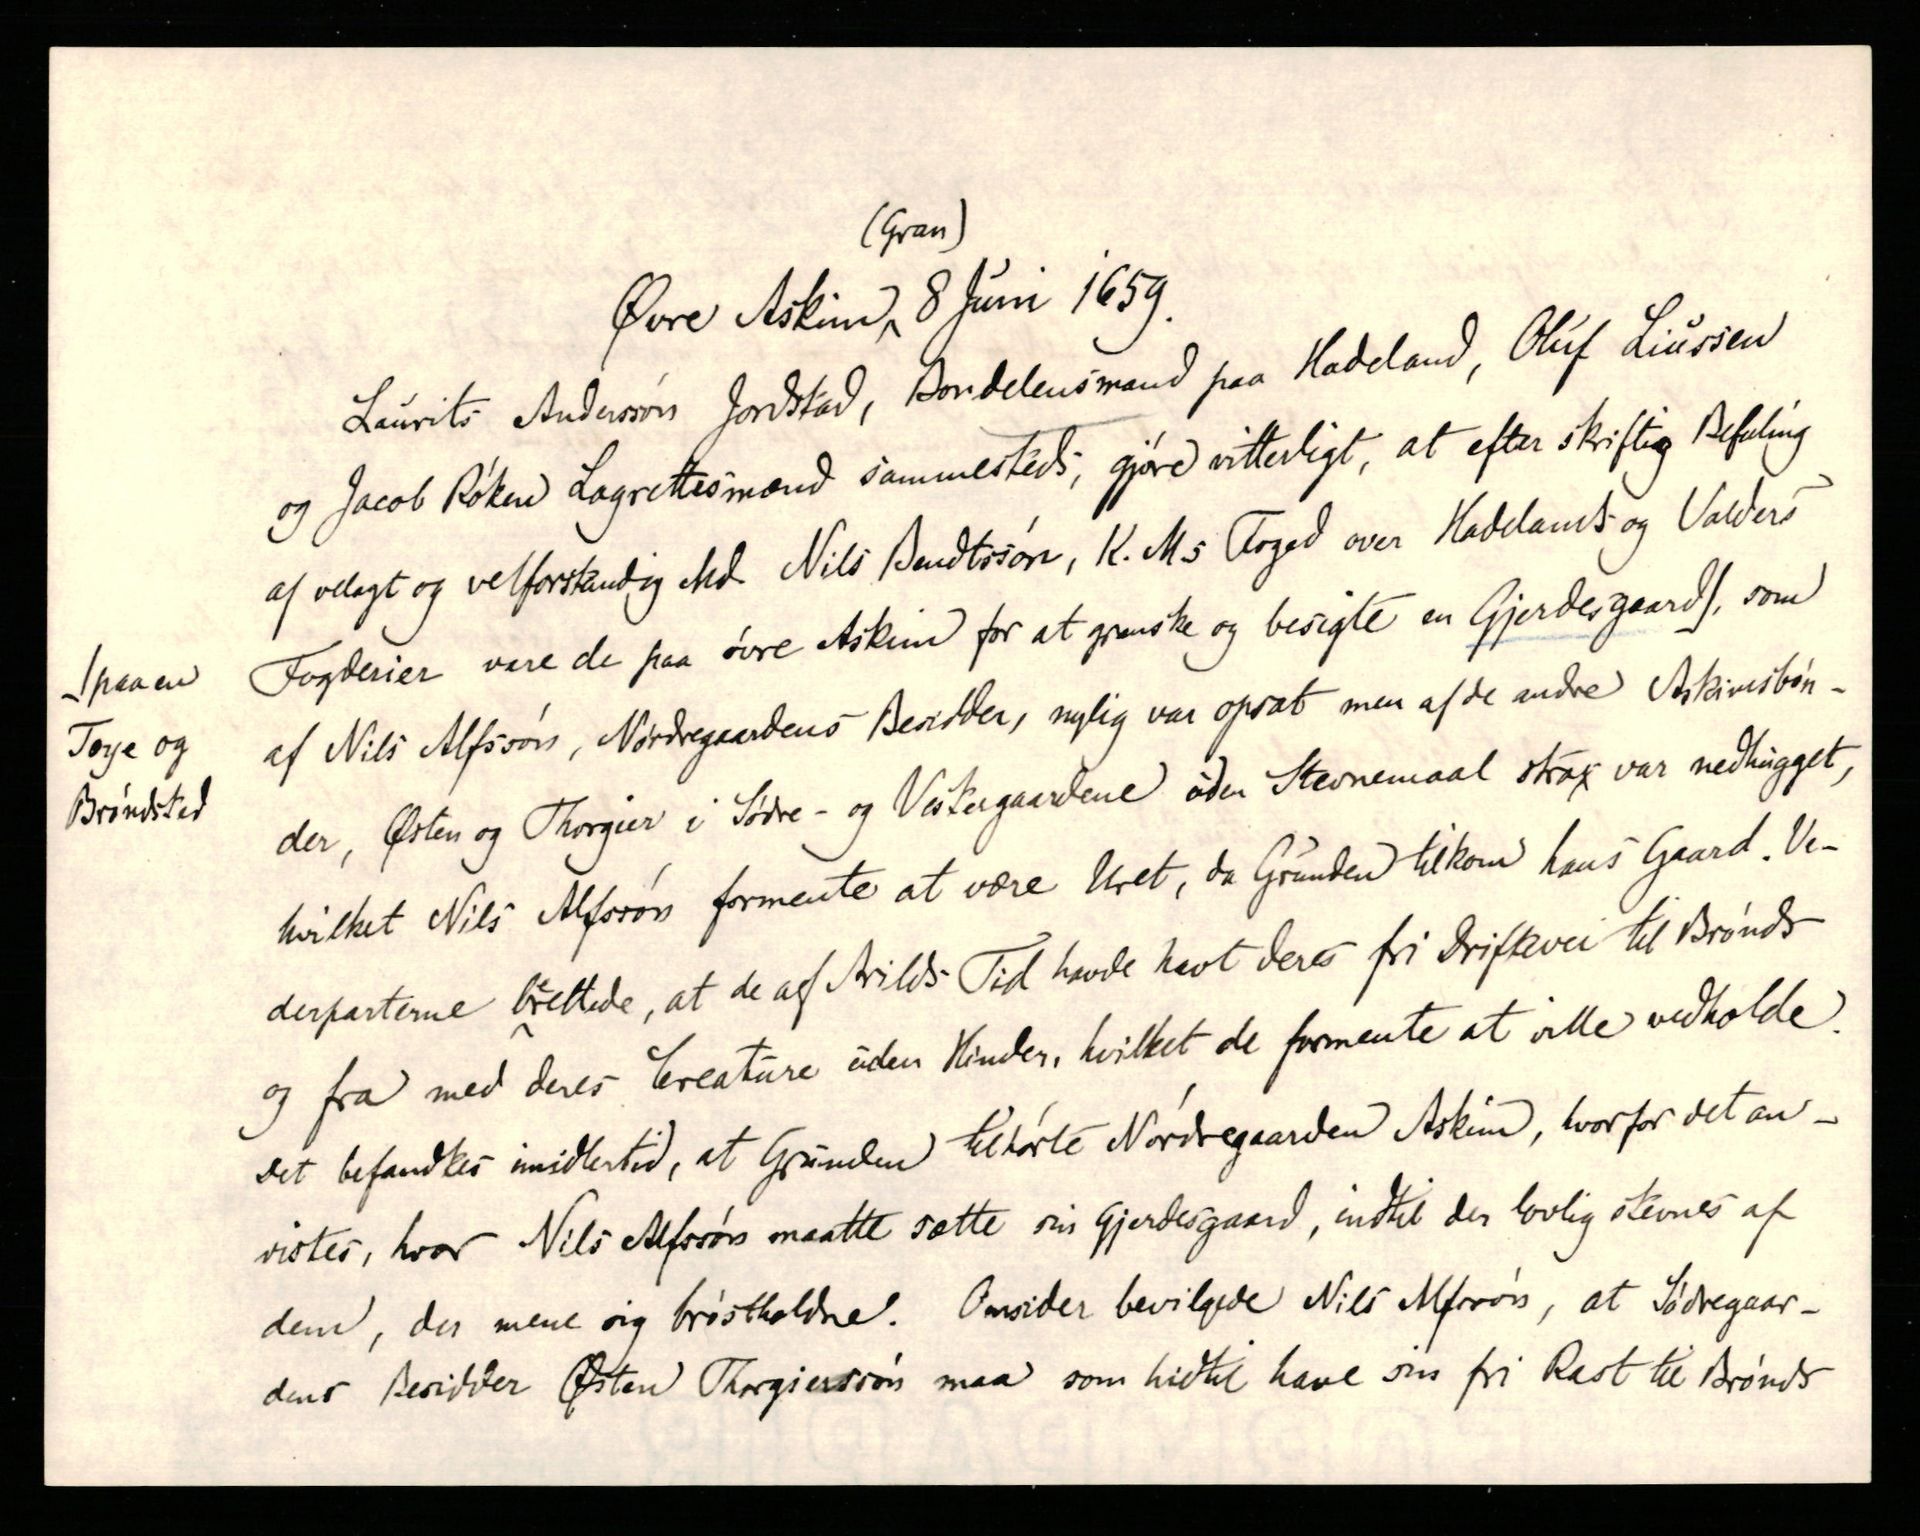 (Gran)
Øvre Askim, 8 Juni 1659.
Laurits Anderssøn Jordstad, Bondelensmand paa Hadeland, Oluf Liussen
og Jacob Røken Lagrettesmænd sammesteds, gjøre vitterligt, at efter skriftlig Befaling
af velagt og velforstandig Md. Nils Bendtssøn, K. M.s Foged over Hadelands og Valders
Fogderier vare de paa øvre Askim for at granske og besigte en Gjerdesgaard, som
paa en
Tøye og
Brøndsted
af Nils Alfssøn, Nordregaardens Besidder, nylig var opsat men af de andre Askimsbøn-
der, Østen og Thorgier i Södre- og Vestergaardene uden Stevnemaal strax var nedhugget,
hvilket Nils Alfssøn formente at være Uret, da Grunden tilkom hans Gaard. Ve-
derparterne berettede, at de af Arilds Tid havde havt deres fri Driftevei til Brønds
og fra med deres Creature uden Hinder, hvilket de formente at ville vedholde.
Det befandtes imidlertid, at Grunden tilhørte Nordregaarden Askim, hvorfor det an-
vistes, hvor Nils Alfssøn maatte sætte sin Gjerdesgaard, indtil der lovlig stevnes af
dem, der mene sig brøstholdne. Omsider bevilgede Nils Alfssøn, at Södregaar-
dens Besidder Østen Thorgierssøn maa som hidtil have sin fri Rast til Brønds